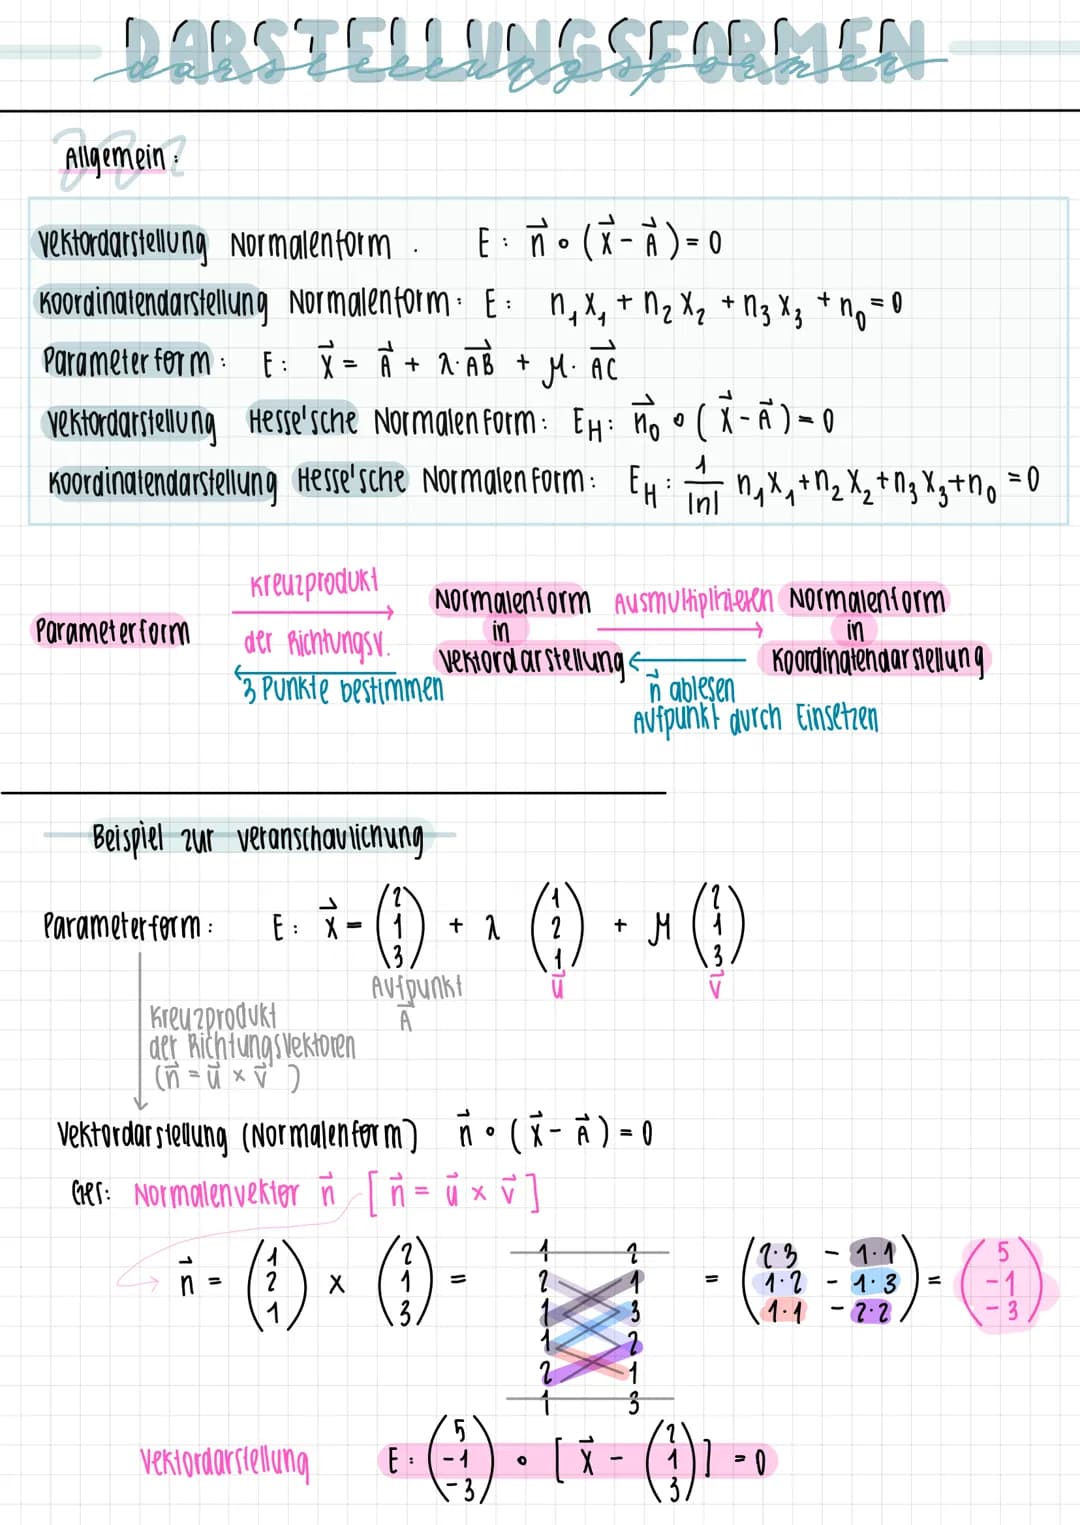 DARSTELLUNGSFORMEN
darstellungsformen
Allgemein:
Vektordarstellung Normalenform. E: n⃗ ∘ (x⃗ - A⃗) = 0
Koordinatendarstellung Normalenform: E: n₁x₁ + n₂x₂ + n₃x₃ + n₀ = 0
Parameterform: E: x⃗ = A⃗ + λ · AB⃗ + μ · AC⃗
Vektordarstellung Hesse'sche Normalenform: E_H: n⃗₀ ∘ (x⃗ - A⃗) = 0
Koordinatendarstellung Hesse'sche Normalenform: E_H: 1/|n| n₁x₁ + n₂x₂ + n₃x₃ + n₀ = 0
Parameterform
Kreuzprodukt
der Richtungsv.
3 Punkte bestimmen
Normalenform
in
Vektordarstellung
Ausmultiplizieren
n⃗ ablesen
Aufpunkt durch Einsetzen
Normalenform
in
Koordinatendarstellung
Beispiel zur Veranschaulichung
Parameterform: E: x⃗ = (2 1 3) + λ (1 2 1) + μ (2 1 3)
Aufpunkt A⃗ u⃗ v⃗
Kreuzprodukt
der Richtungsvektoren
(n⃗ = u⃗ × v⃗)
Vektordarstellung (Normalenform) n⃗ ∘ (x⃗ - A⃗) = 0
Ges: Normalenvektor n⃗ [n⃗ = u⃗ × v⃗]
n⃗ = (1 2 1) × (2 1 3) =
1 2
2 1
1 3
1 2
2 1
1 3
= (2·3 - 1·1
1·2 - 1·3
1·1 - 2·2) = (5 -1 -3)
Vektordarstellung E: (5 -1 -3) ∘ [x⃗ - (2 1 3)] = 0